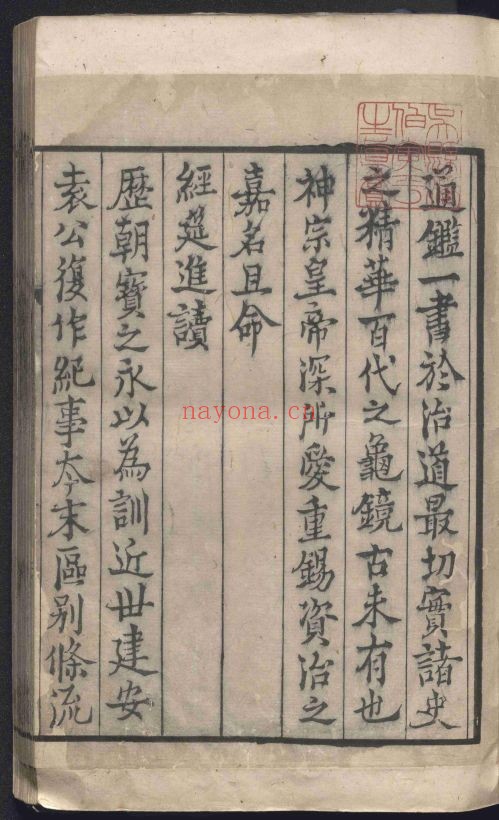 通鑑一書於治道最切實諸史
之精華百代之龜鏡古未有也
神宗皇帝深所愛重錫資治之
嘉名且命
經筵進讀
歴朝寶之永以為訓近世建安
袁公復作紀事夲末區别條流
nayona.cn